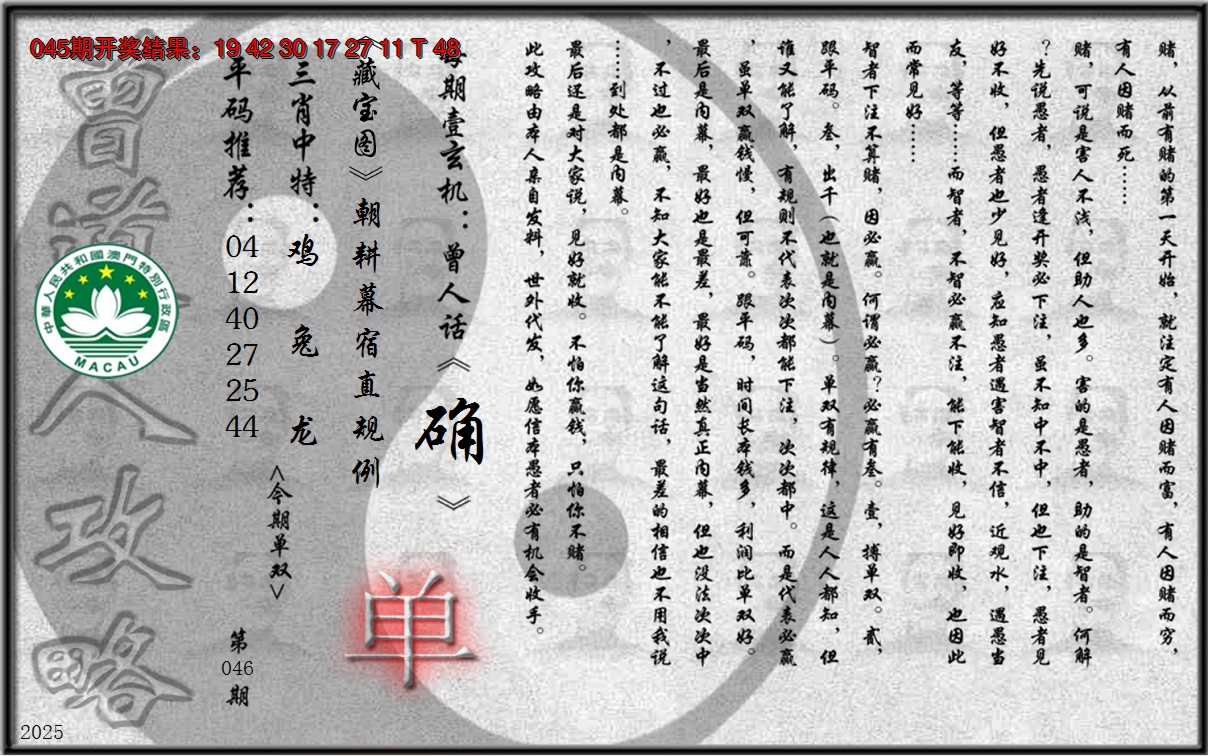 045期开奖结果：19 42 30 17 27 11 T 48
赌，从前有赌的第一天开始，就注定有人因赌而富，有人因赌而穷，
有人因赌而死……
赌，可说是害人不浅，但助人也多。害的是愚者，助的是智者。何解
？先说愚者，愚者逢开奖必下注，虽不知中不中，但也下注，愚者见
好不收，但愚者也少见好，应知愚者遇害智者不信，近观水，遇愚当
友，等等……而智者，不智必赢不注，能下能收，见好即收，也因此
而常见好……
智者下注不算赌，因必赢。何谓必赢？必赢有叁。壹，搏单双。贰，
跟平码。叁，出千（也就是内幕）。单双有规律，这是人人都知，但
谁又能了解，有规则不代表次次都能下注，次次都中。而是代表必赢
，虽单双赢钱慢，但可靠。跟平码，时间长本钱多，利润比单双好。
最后是内幕，最好也是最差，最好是当然真正内幕，但也没法次次中
，不过也必赢，不知大家能不能了解这句话，最差的相信也不用我说
……到处都是内幕。
最后还是对大家说，见好就收。不怕你赢钱，只怕你不赌。
此攻略由本人亲自发料，世外代发，如愿信本愚者必有机会收手。
每期壹玄机：曾人话《确》
《藏宝图》朝耕暮宿直规例
单
三肖中特：鸡 兔 龙
<今期单双>
平码推荐：04 12 40 27 25 44
第046期
曾道人攻略
中華人民共和國澳門特別行政區
MACAU
2025